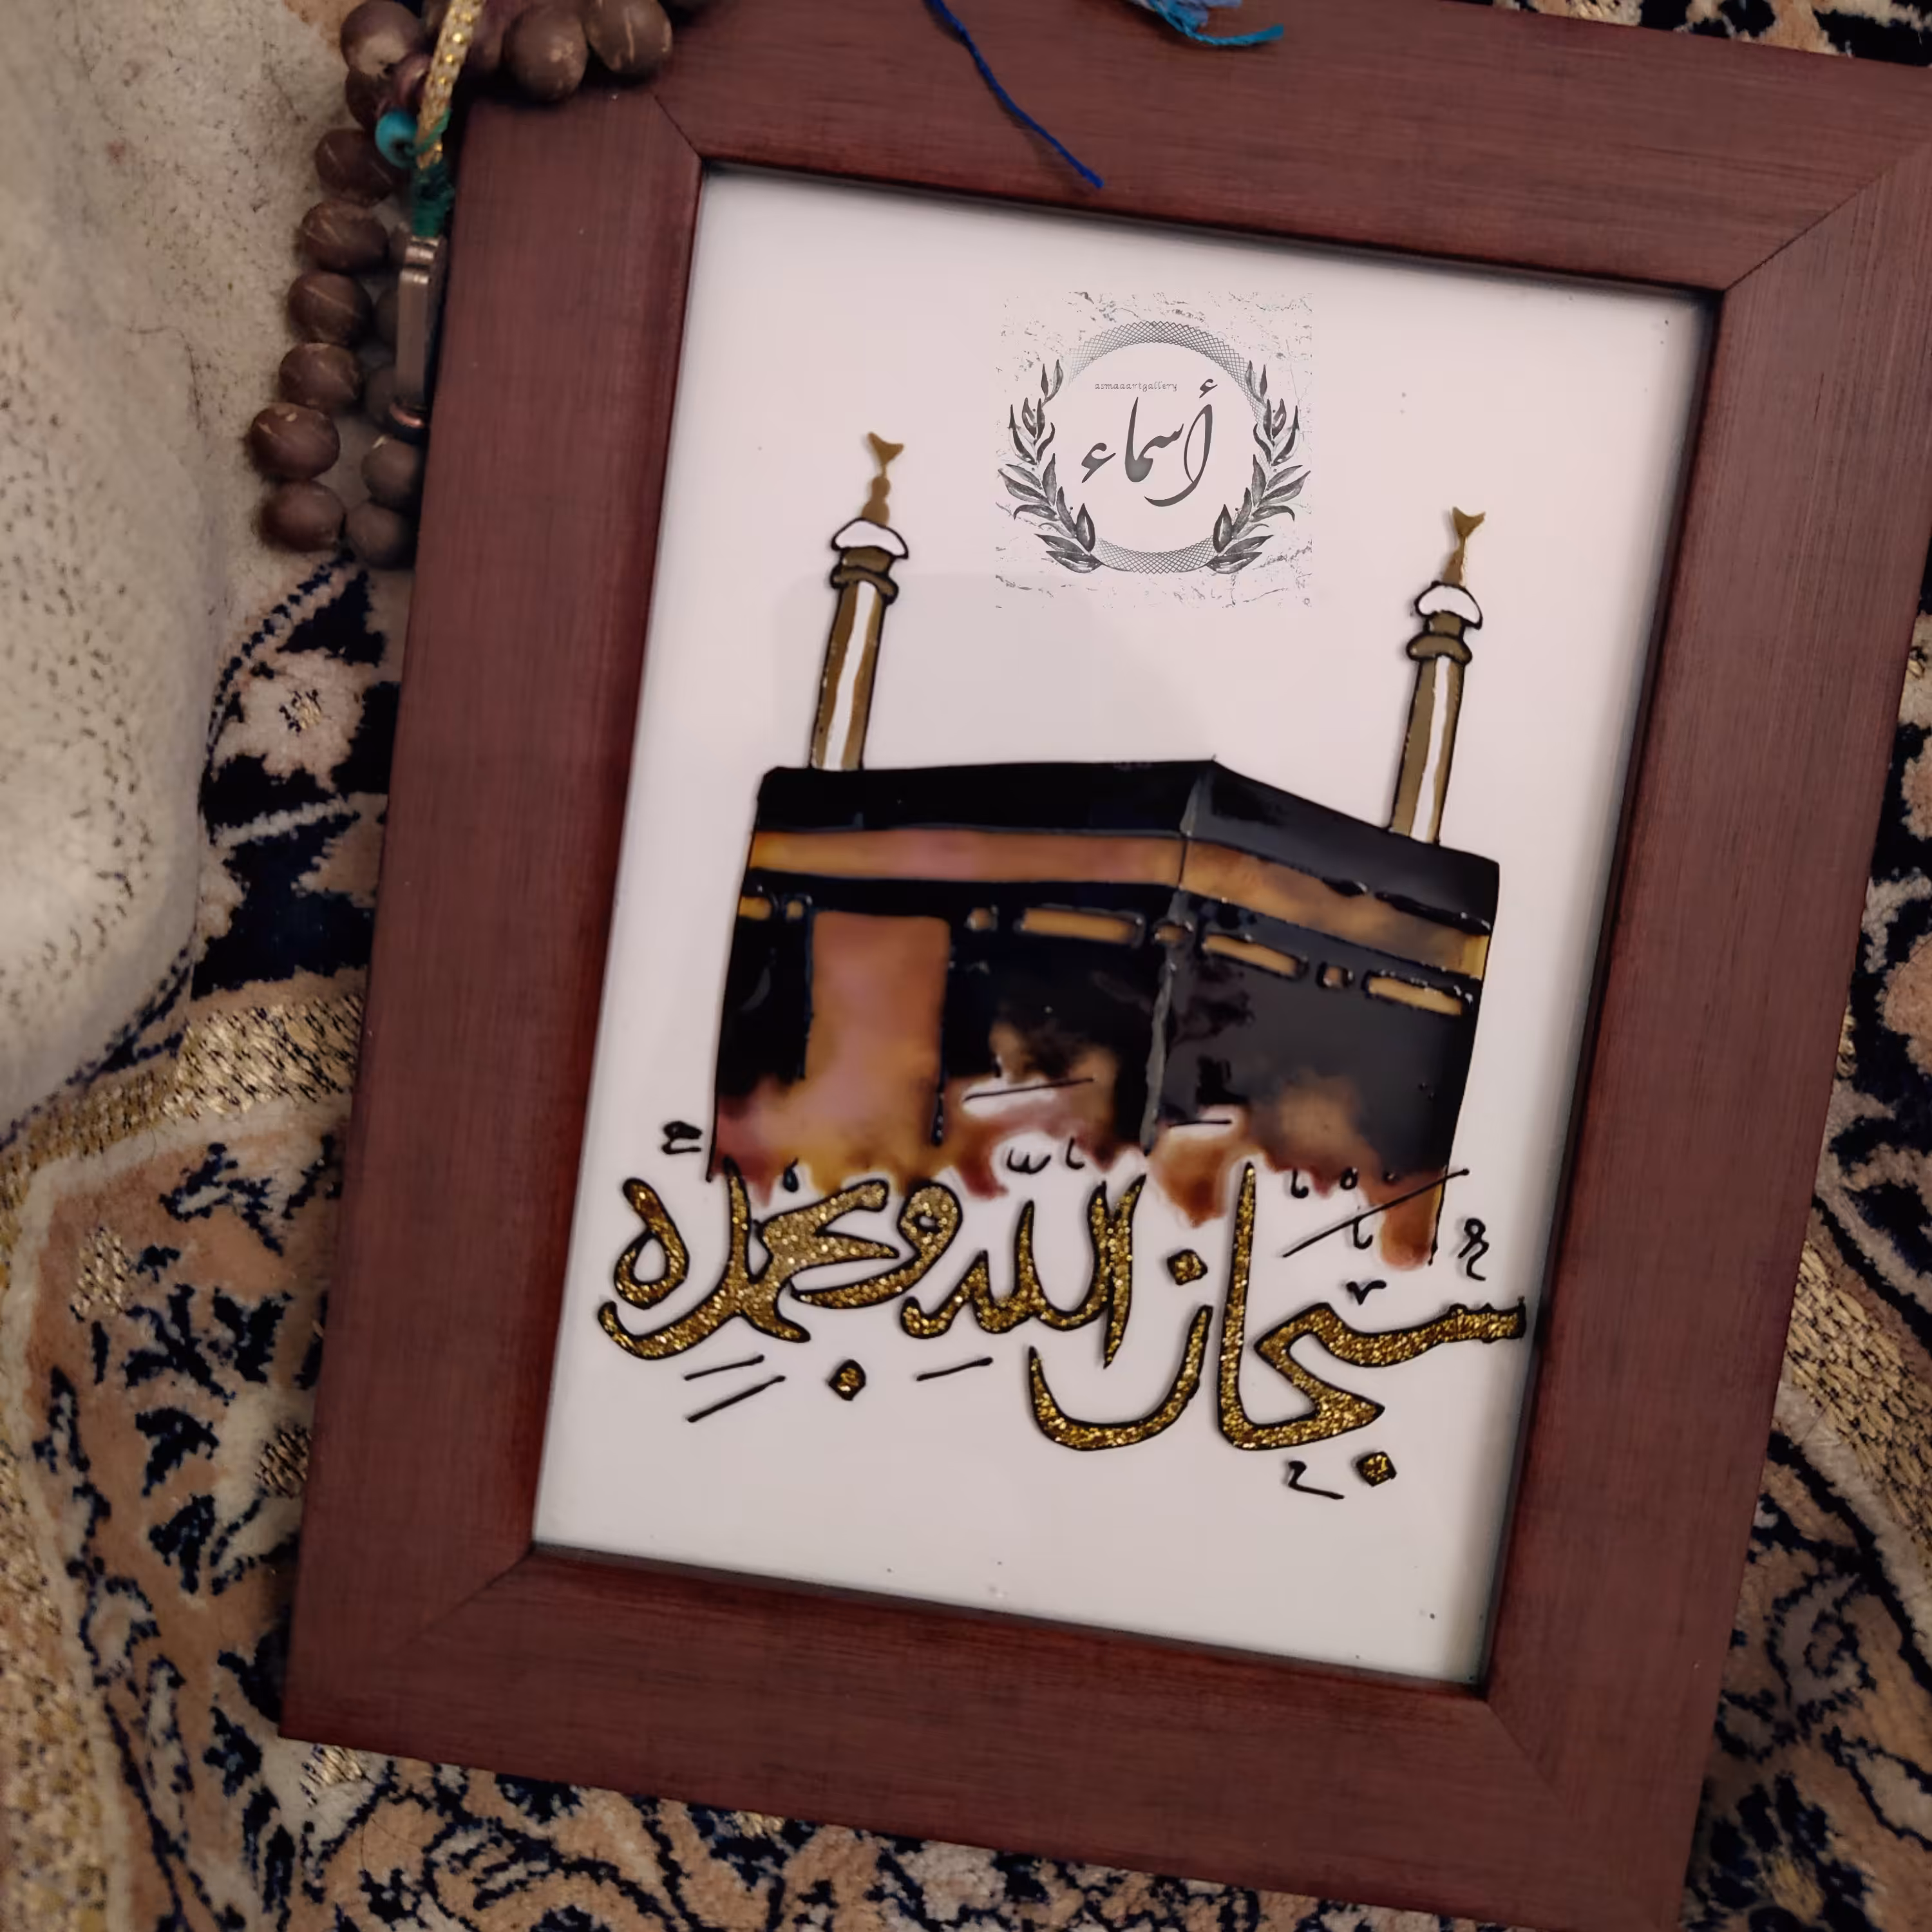 asmaaartgallery
أسماء
سبحان الله وبحمده